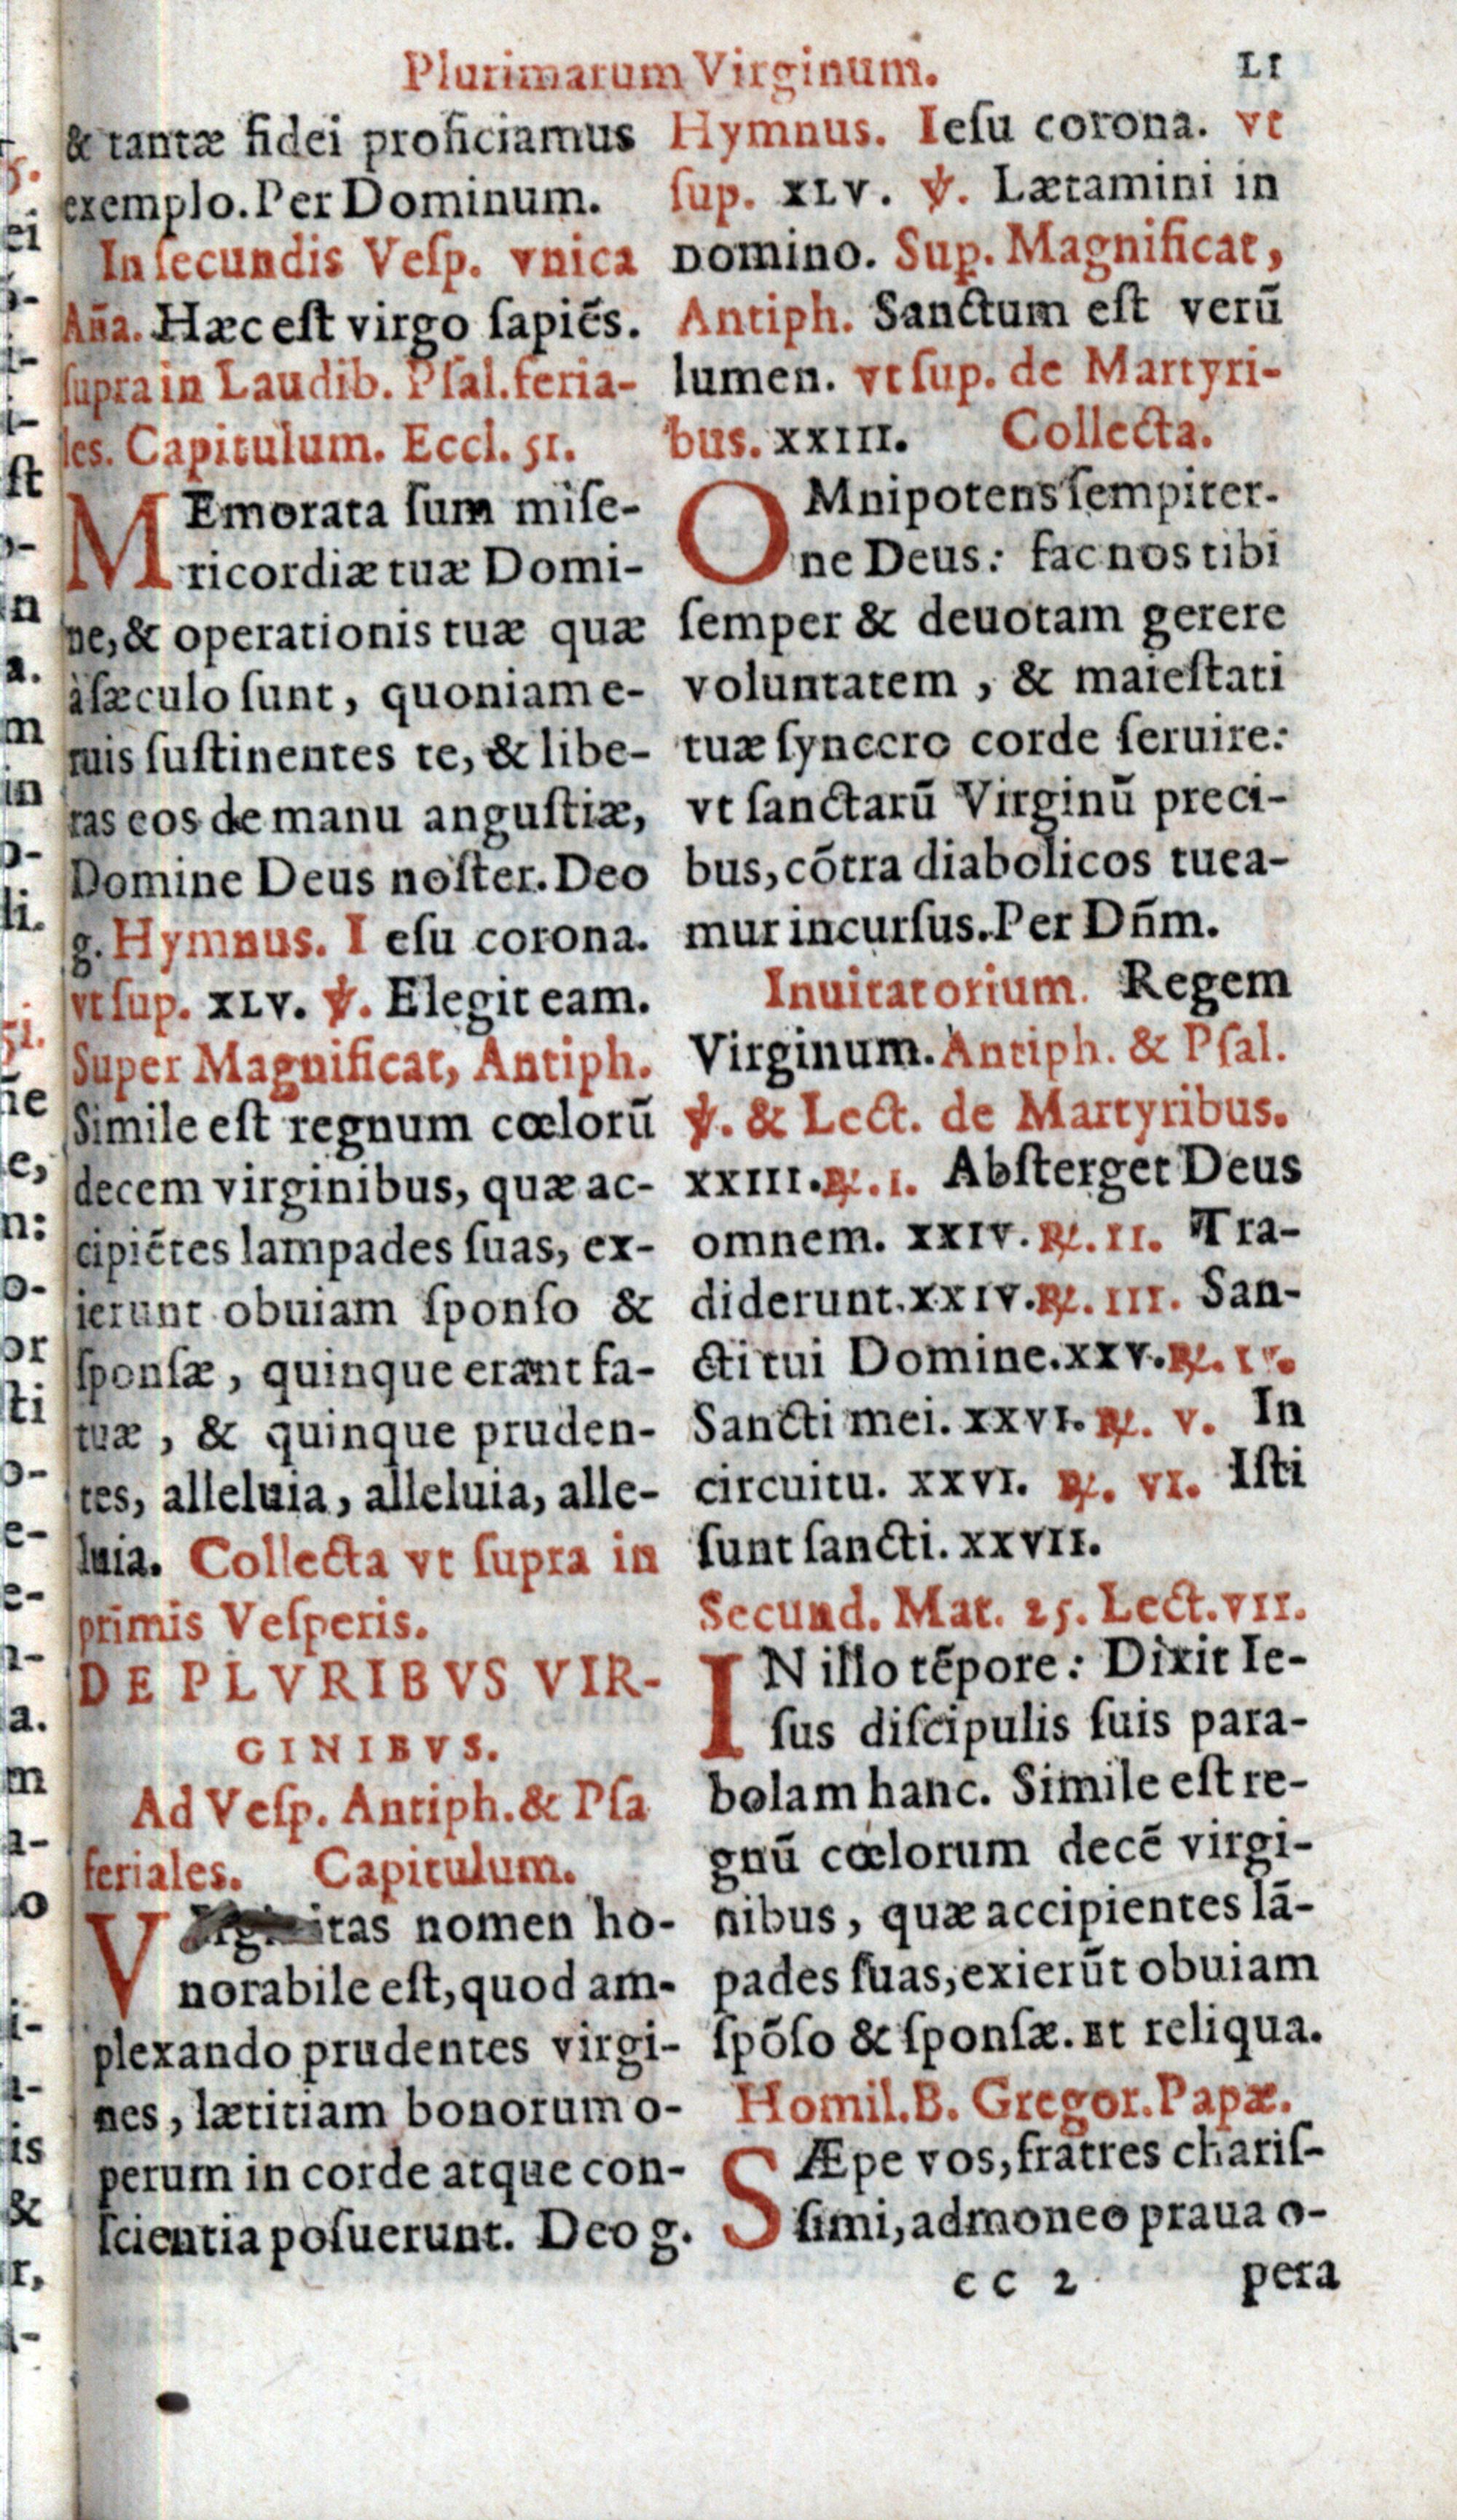 Plurimarum Virginum. LI
& tantæ fidei proficiamus
exemplo. Per Dominum.
In ſecundis Veſp. vnica
Aña. Hæc eſt virgo ſapiẽs.
ſupra in Laudib. Pſal. feria-
les. Capitulum. Eccl. 51.
MEmorata ſum miſe-
ricordiæ tuæ Domi-
ne, & operationis tuæ quæ
à ſæculo ſunt, quoniam e-
ruis ſuſtinentes te, & libe-
ras eos de manu anguſtiæ,
Domine Deus noſter. Deo
g. Hymnus. I eſu corona.
vt ſup. XLV. ℣. Elegit eam.
Super Magnificat, Antiph.
Simile eſt regnum cœlorũ
decem virginibus, quæ ac-
cipiẽtes lampades ſuas, ex-
ierunt obuiam ſponſo &
ſponſæ, quinque erant fa-
tuæ, & quinque pruden-
tes, alleluia, alleluia, alle-
luia. Collecta vt ſupra in
primis Veſperis.
DE PLVRIBVS VIR-
GINIBVS.
Ad Veſp. Antiph. & Pſa
feriales. Capitulum.
Virginitas nomen ho-
norabile eſt, quod am-
plexando prudentes virgi-
nes, lætitiam bonorum o-
perum in corde atque con-
ſcientia poſuerunt. Deo g.
Hymnus. Ieſu corona. vt
ſup. XLV. ℣. Lætamini in
Domino. Sup. Magnificat,
Antiph. Sanctum eſt verũ
lumen. vt ſup. de Martyri-
bus. XXIII. Collecta.
OMnipotens ſempiter-
ne Deus: fac nos tibi
ſemper & deuotam gerere
voluntatem, & maieſtati
tuæ ſyncero corde ſeruire:
vt ſanctarũ Virginũ preci-
bus, cõtra diabolicos tuea-
mur incurſus. Per Dñm.
Inuitatorium. Regem
Virginum. Antiph. & Pſal.
℣. & Lect. de Martyribus.
XXIII. ℟. I. Abſterget Deus
omnem. XXIV. ℟. II. Tra-
diderunt. XXIV. ℟. III. San-
cti tui Domine. XXV. ℟. IV.
Sancti mei. XXVI. ℟. V. In
circuitu. XXVI. ℟. VI. Iſti
ſunt ſancti. XXVII.
Secund. Mat. 25. Lect. VII.
IN illo tẽpore: Dixit Ie-
ſus diſcipulis ſuis para-
bolam hanc. Simile eſt re-
gnũ cœlorum decẽ virgi-
nibus, quæ accipientes lã-
pades ſuas, exierũt obuiam
ſpõſo & ſponſæ. Et reliqua.
Homil. B. Gregor. Papæ.
SÆpe vos, fratres chariſ-
ſimi, admoneo praua o-
CC 2 pera